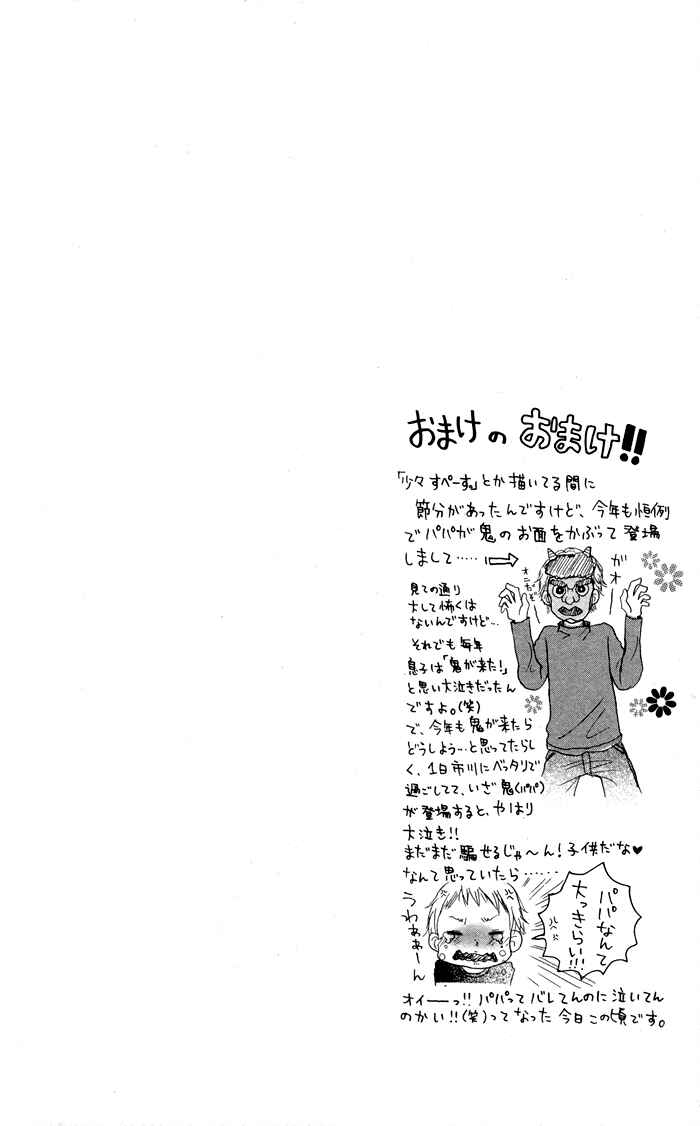 おまけのおまけ!!
「少々すぺーす。」とか描いてる間に
節分があったんですけど、今年も恒例
でパパが鬼のお面をかぶって登場
しまして……
ガオ
オニだぞ
見ての通り
大して怖くは
ないんですけど…
それでも毎年
息子は「鬼が来た!」
と思い大泣きだったん
ですよ。(笑)
で、今年も鬼が来たら
どうしよう…と思ってたらし
く、1日市川にベッタリで
過ごしてて、いざ鬼(パパ)
が登場すると、やはり
大泣き!!
まだまだ騙せるじゃ〜ん!子供だな♥
なんて思っていたら……
パパなんて
大っきらい!!!
うわぁぁーん
オイーっ!!パパってバレてんのに泣いてん
のかい!!(笑)ってなった今日この頃です。